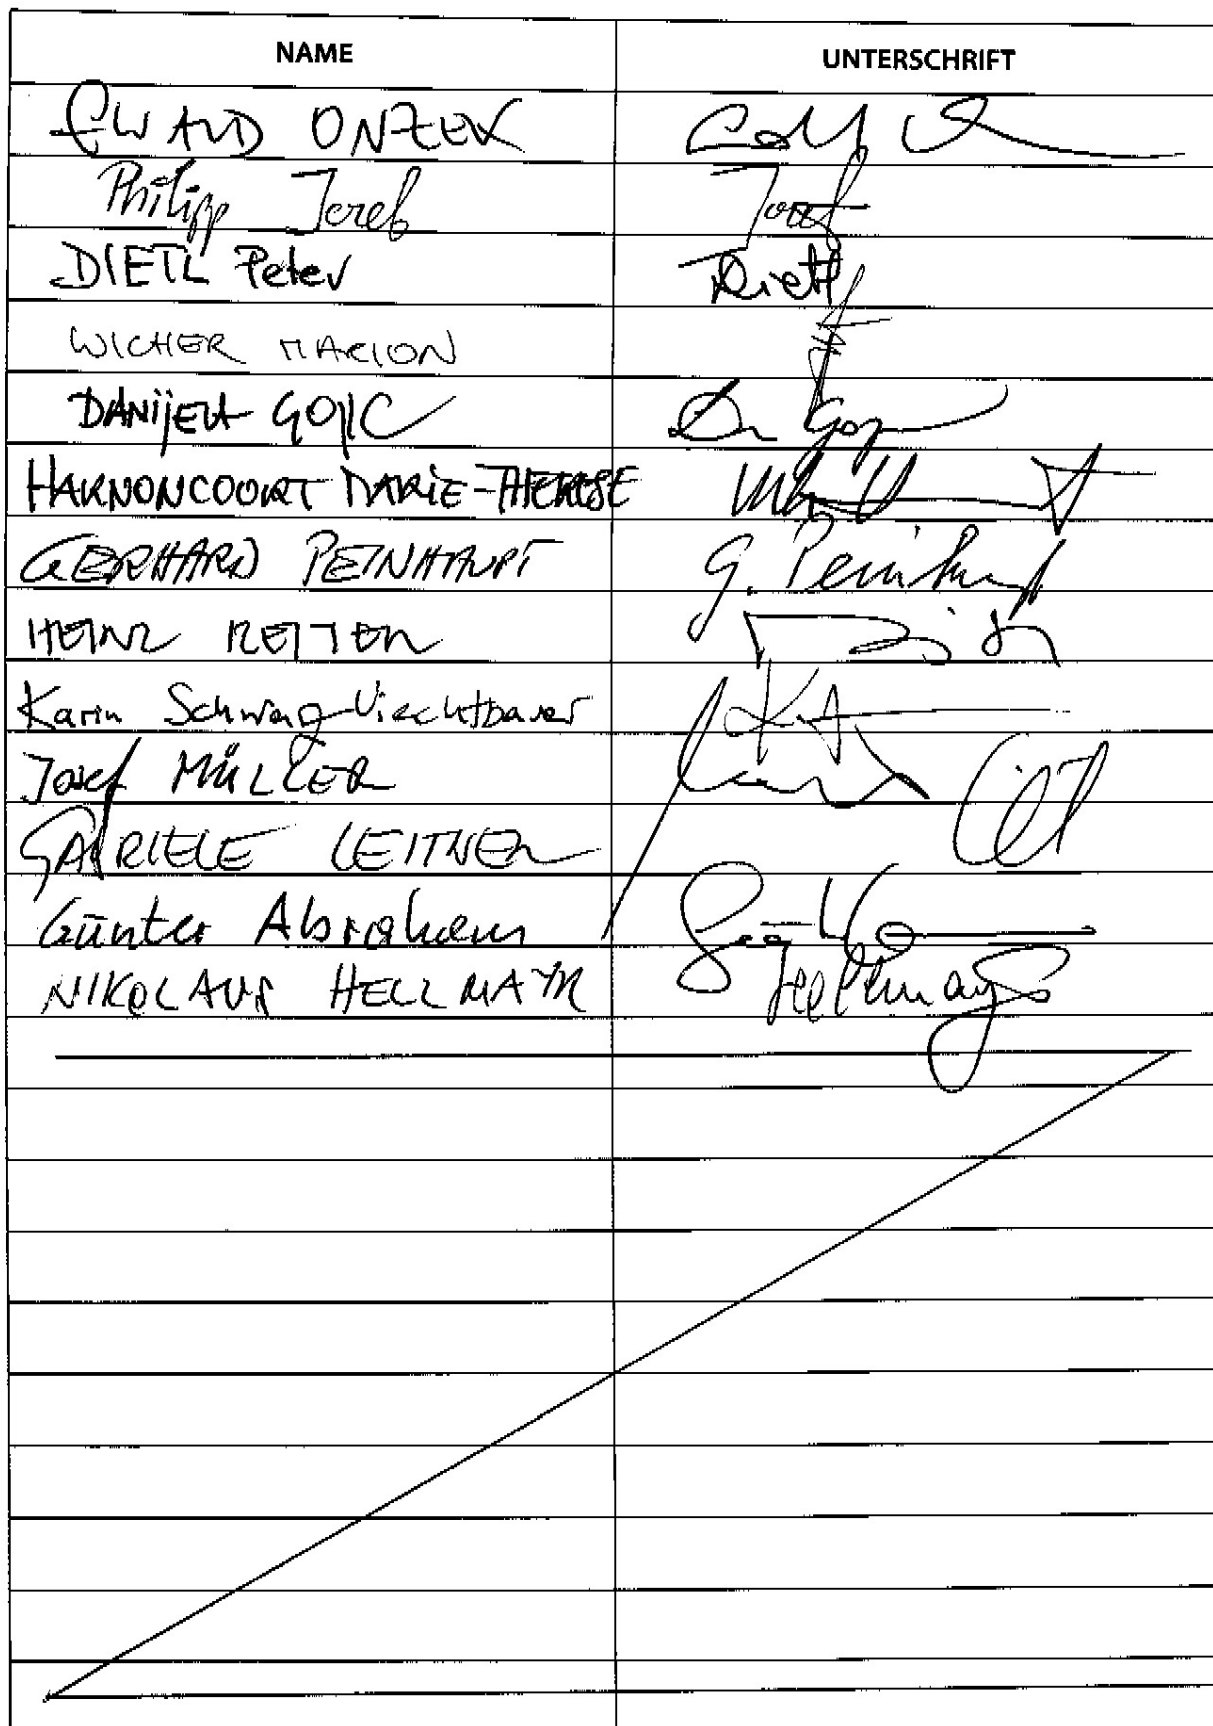 NAME UNTERSCHRIFT
EWALD ONZEK
Philipp Jereb
DIETL Peter Dietl
WICHER MARION
DANIJELA GOJIC
HARNONCOURT MARIE-THERESE
GERHARD PEINHAUPT G. Peinhaupt
HEINZ REITER
Karin Schwarz-Viechtbauer
Josef MÜLLER
GABRIELE LEITNER
Günter Abraham
NIKOLAUS HELLMAYR Hellmayr